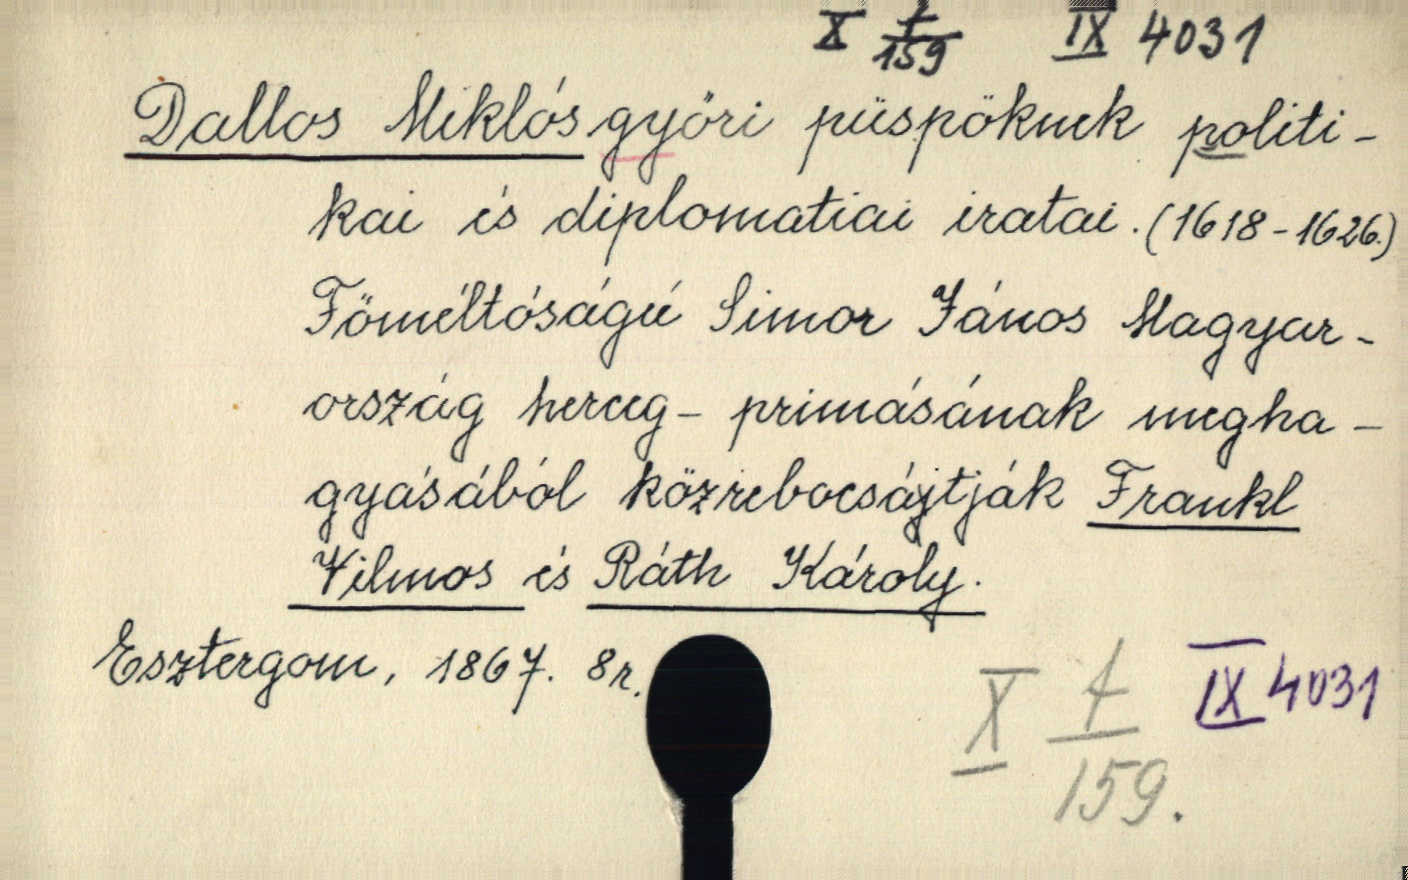 X f/159 IX 4031
Dallos Miklós győri püspöknek politi-
kai és diplomatiai iratai. (1618-1626.)
Főméltóságú Simor János Magyar-
ország herceg-primásának megha-
gyásából közrebocsájtják Frankl
Vilmos és Ráth Károly.
Esztergom, 1867. 8r.
X f/159. IX 4031